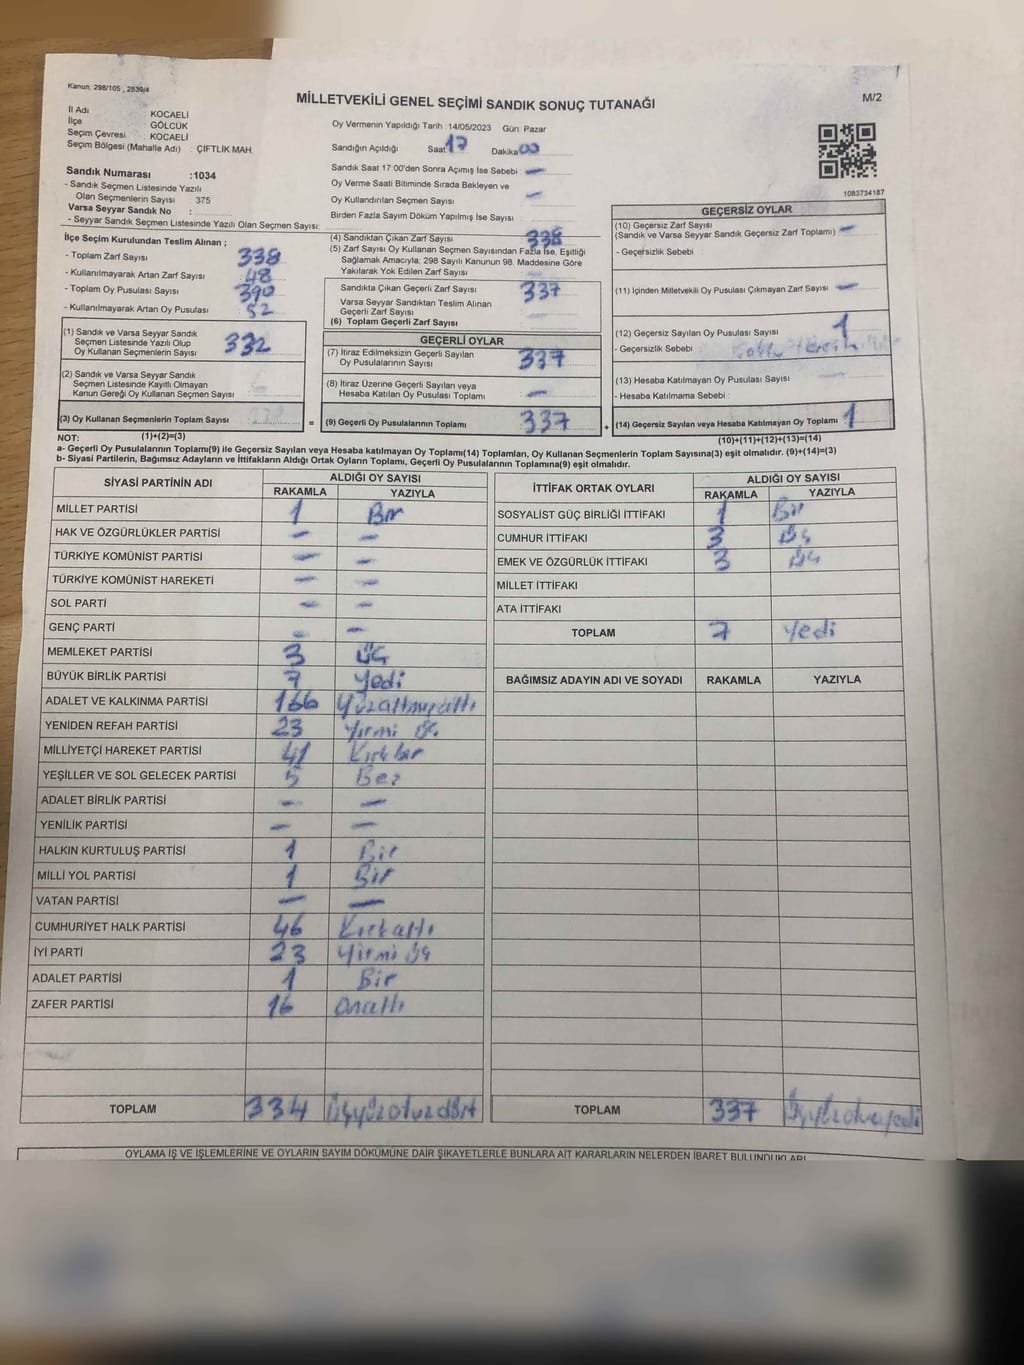 Kanun: 298/105 , 2839/4
MİLLETVEKİLİ GENEL SEÇİMİ SANDIK SONUÇ TUTANAĞI
M/2
İl Adı KOCAELİ
İlçe GÖLCÜK
Seçim Çevresi : KOCAELİ
Seçim Bölgesi (Mahalle Adı) : ÇİFTLİK MAH.
Sandık Numarası :1034
- Sandık Seçmen Listesinde Yazılı
Olan Seçmenlerin Sayısı 375
Varsa Seyyar Sandık No :
- Seyyar Sandık Seçmen Listesinde Yazılı Olan Seçmen Sayısı:
Oy Vermenin Yapıldığı Tarih :14/05/2023 Gün: Pazar
Sandığın Açıldığı Saat 17 Dakika 00
Sandık Saat 17:00'den Sonra Açımış İse Sebebi : —
Oy Verme Saati Bitiminde Sırada Bekleyen ve
Oy Kullandırılan Seçmen Sayısı —
Birden Fazla Sayım Döküm Yapılmış İse Sayısı :
1083734187
İlçe Seçim Kurulundan Teslim Alınan ;
- Toplam Zarf Sayısı 338
- Kullanılmayarak Artan Zarf Sayısı 48
- Toplam Oy Pusulası Sayısı 390
- Kullanılmayarak Artan Oy Pusulası 52
(1) Sandık ve Varsa Seyyar Sandık
Seçmen Listesinde Yazılı Olup
Oy Kullanan Seçmenlerin Sayısı 332
(2) Sandık ve Varsa Seyyar Sandık
Seçmen Listesinde Kayıtlı Olmayan
Kanun Gereği Oy Kullanan Seçmen Sayısı
(3) Oy Kullanan Seçmenlerin Toplam Sayısı
(4) Sandıktan Çıkan Zarf Sayısı 338
(5) Zarf Sayısı Oy Kullanan Seçmen Sayısından Fazla İse, Eşitliği
Sağlamak Amacıyla, 298 Sayılı Kanunun 98. Maddesine Göre
Yakılarak Yok Edilen Zarf Sayısı
Sandıkta Çıkan Geçerli Zarf Sayısı 337
Varsa Seyyar Sandıktan Teslim Alınan
Geçerli Zarf Sayısı
(6) Toplam Geçerli Zarf Sayısı
GEÇERLİ OYLAR
(7) İtiraz Edilmeksizin Geçerli Sayılan
Oy Pusulalarının Sayısı 337
(8) İtiraz Üzerine Geçerli Sayılan veya
Hesaba Katılan Oy Pusulası Toplamı —
= (9) Geçerli Oy Pusulalarının Toplamı 337 +
GEÇERSİZ OYLAR
(10) Geçersiz Zarf Sayısı
(Sandık ve Varsa Seyyar Sandık Geçersiz Zarf Toplamı) —
- Geçersizlik Sebebi
(11) İçinden Milletvekili Oy Pusulası Çıkmayan Zarf Sayısı —
(12) Geçersiz Sayılan Oy Pusulası Sayısı 1
- Geçersizlik Sebebi
(13) Hesaba Katılmayan Oy Pusulası Sayısı —
- Hesaba Katılmama Sebebi :
(14) Geçersiz Sayılan veya Hesaba Katılmayan Oy Toplamı 1
NOT: (1)+(2)=(3) (10)+(11)+(12)+(13)=(14)
a- Geçerli Oy Pusulalarının Toplamı(9) ile Geçersiz Sayılan veya Hesaba katılmayan Oy Toplamı(14) Toplamları, Oy Kullanan Seçmenlerin Toplam Sayısına(3) eşit olmalıdır. (9)+(14)=(3)
b- Siyasi Partilerin, Bağımsız Adayların ve İttifakların Aldığı Ortak Oyların Toplamı, Geçerli Oy Pusulalarının Toplamına(9) eşit olmalıdır.
SİYASİ PARTİNİN ADI ALDIĞI OY SAYISI
RAKAMLA YAZIYLA
MİLLET PARTİSİ 1 Bir
HAK VE ÖZGÜRLÜKLER PARTİSİ — —
TÜRKİYE KOMÜNİST PARTİSİ — —
TÜRKİYE KOMÜNİST HAREKETİ — —
SOL PARTİ — —
GENÇ PARTİ — —
MEMLEKET PARTİSİ 3 ÜÇ
BÜYÜK BİRLİK PARTİSİ 7 Yedi
ADALET VE KALKINMA PARTİSİ 166 Yüzaltmışaltı
YENİDEN REFAH PARTİSİ 23 Yirmi üç
MİLLİYETÇİ HAREKET PARTİSİ 41 Kırkbir
YEŞİLLER VE SOL GELECEK PARTİSİ 5 Beş
ADALET BİRLİK PARTİSİ — —
YENİLİK PARTİSİ — —
HALKIN KURTULUŞ PARTİSİ 1 Bir
MİLLİ YOL PARTİSİ 1 Bir
VATAN PARTİSİ — —
CUMHURİYET HALK PARTİSİ 46 Kırkaltı
İYİ PARTİ 23 Yirmi üç
ADALET PARTİSİ 1 Bir
ZAFER PARTİSİ 16 Onaltı
TOPLAM 334 Üçyüzotuzdört
İTTİFAK ORTAK OYLARI ALDIĞI OY SAYISI
RAKAMLA YAZIYLA
SOSYALİST GÜÇ BİRLİĞİ İTTİFAKI 1 Bir
CUMHUR İTTİFAKI 3 Üç
EMEK VE ÖZGÜRLÜK İTTİFAKI 3 Üç
MİLLET İTTİFAKI
ATA İTTİFAKI
TOPLAM 7 Yedi
BAĞIMSIZ ADAYIN ADI VE SOYADI RAKAMLA YAZIYLA
TOPLAM 337
OYLAMA İŞ VE İŞLEMLERİNE VE OYLARIN SAYIM DÖKÜMÜNE DAİR ŞİKAYETLERLE BUNLARA AİT KARARLARIN NELERDEN İBARET BULUNDUKLARI